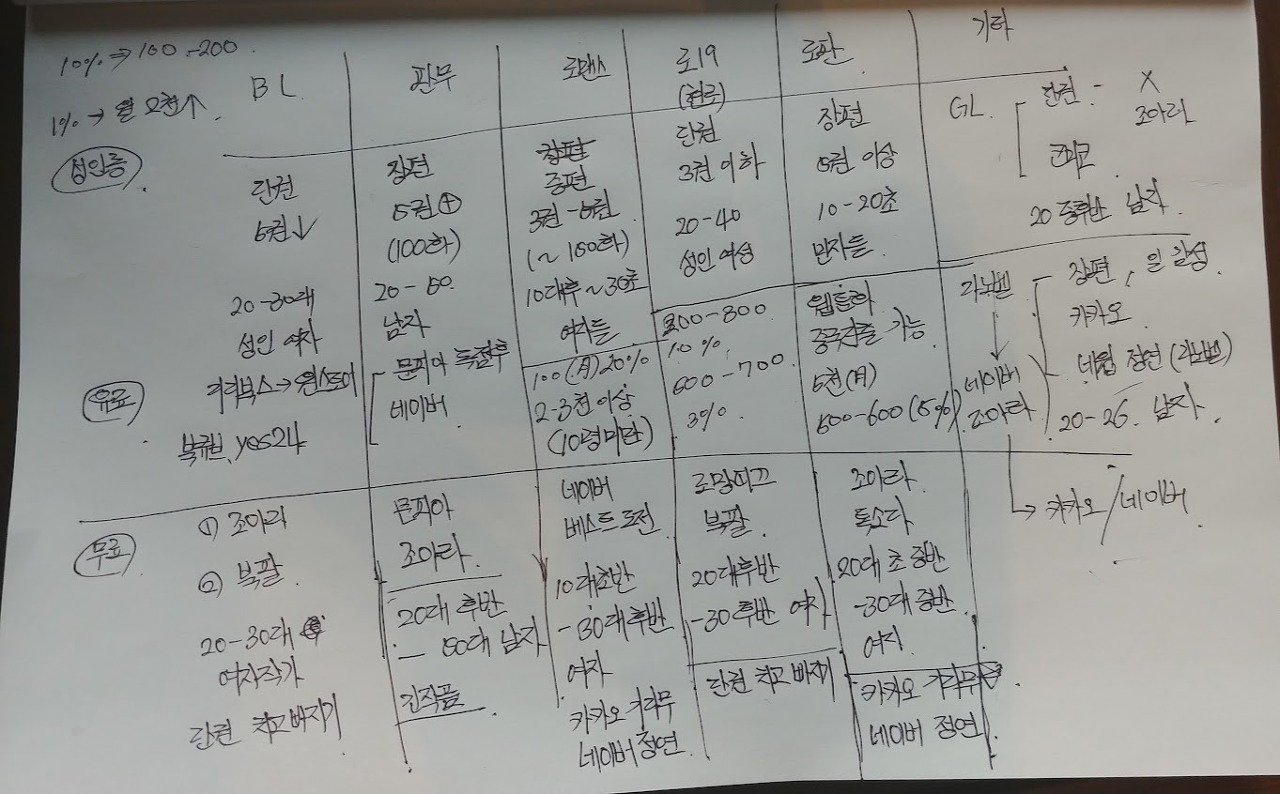 10% → 100 - 200
1% → 월 오천↑
BL
판무
로맨스
로19
로판
기타
성인등
단권
6권↓
20-30대
성인 여자
장편
5권⊕
(100화)
20-50
남자
장편
중편
3권-6권
(~150화)
10대후~30초
여자들
단권
3권 이하
20-40
성인 여성
장편
5권 이상
10-20초
민자들
GL
단권 - X
조아라
20 중후반 남자
유료
→ 원스토어
북큐브, yes24
문피아 독점후
네이버
100(月) 20%
2-3천 이상
(10명미만)
200-300
10%
600-700
3%
웹툰화
중국진출 가능
5천(月)
500-600 (5%)
라노벨
네이버
조아라
장편, 일 감성
카카오
네웹 정연 (라노벨)
20-26 남자
→ 카카오/네이버
무료
① 조아라
② 북팔
20-30대
여자작가
단권 치고빠지기
문피아
조아라
20대 후반
- 50대 남자
긴작품
네이버
베스트 도전
10대초반
-30대후반
여자
카카오 기다무
네이버 정연
로망띠끄
북팔
20대후반
-30후반 여자
단권 치고 빠지기
조아라
톡소다
20대 초중반
-30대 중반
여자
카카오 기다무
네이버 정연